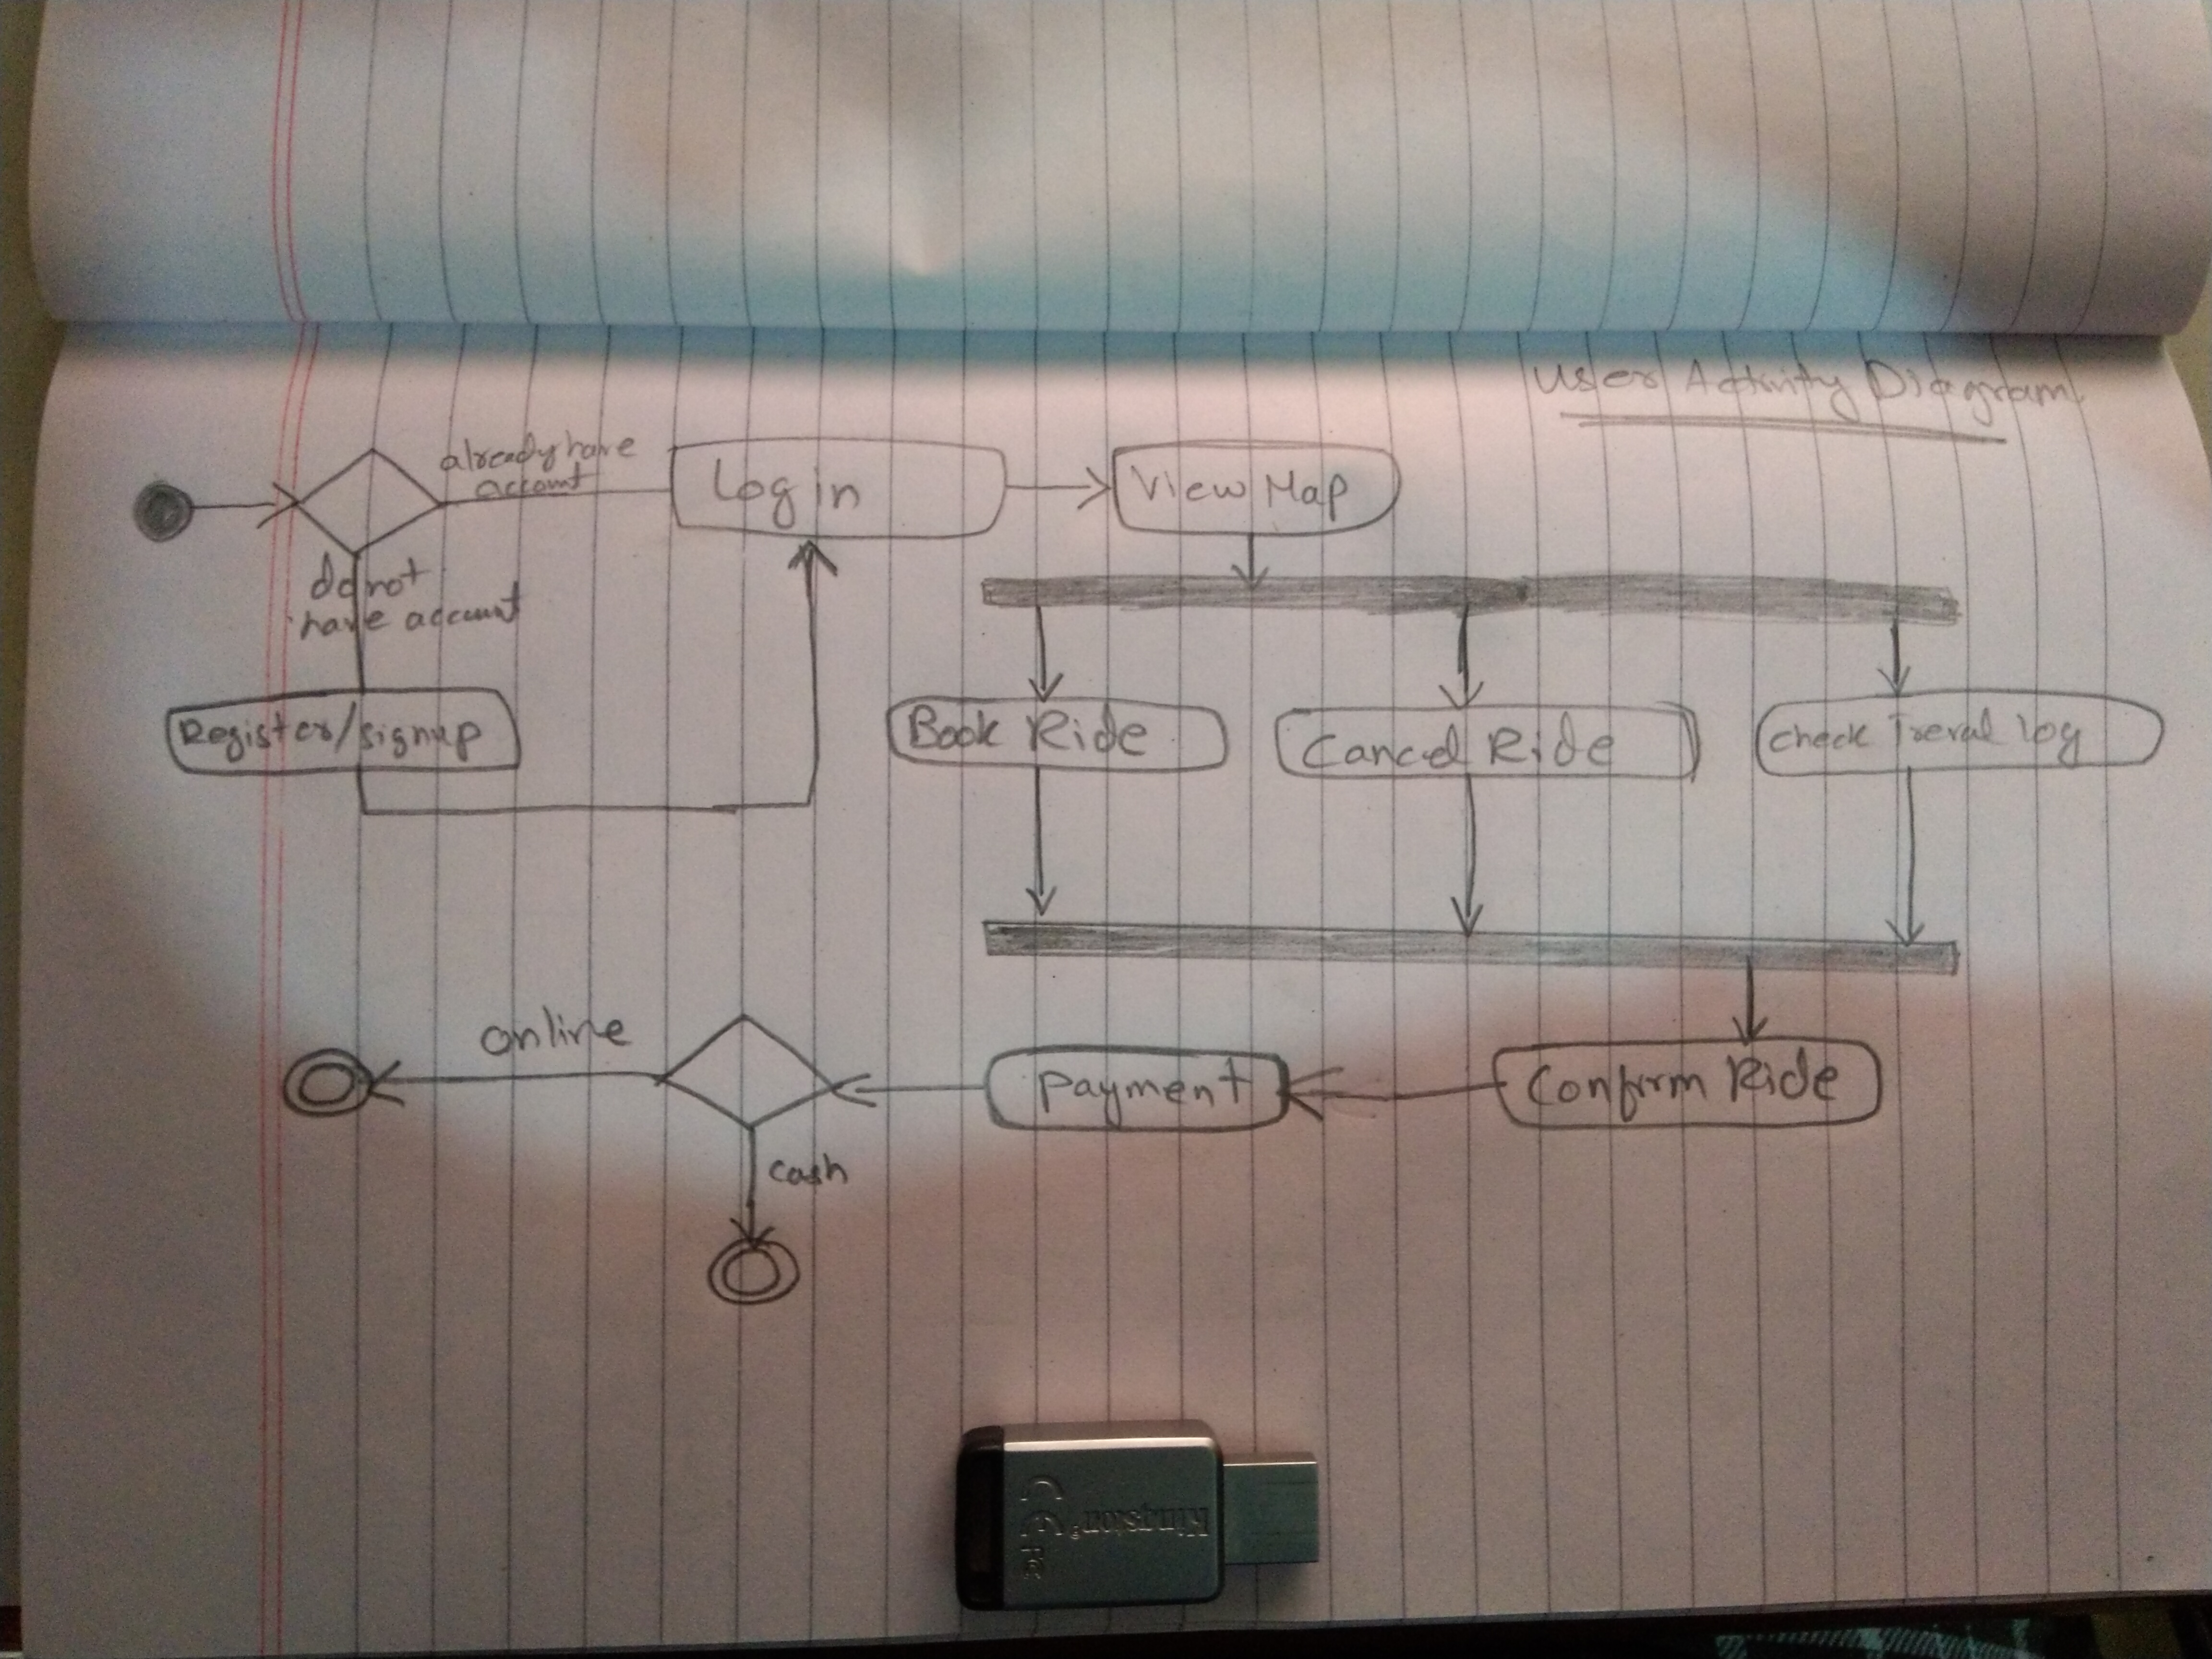 User Activity Diagram
already have
account
Log in
View Map
do not
have account
Register/signup
Book Ride
Cancel Ride
check Treval log
online
payment
Confirm Ride
cash
Kingston